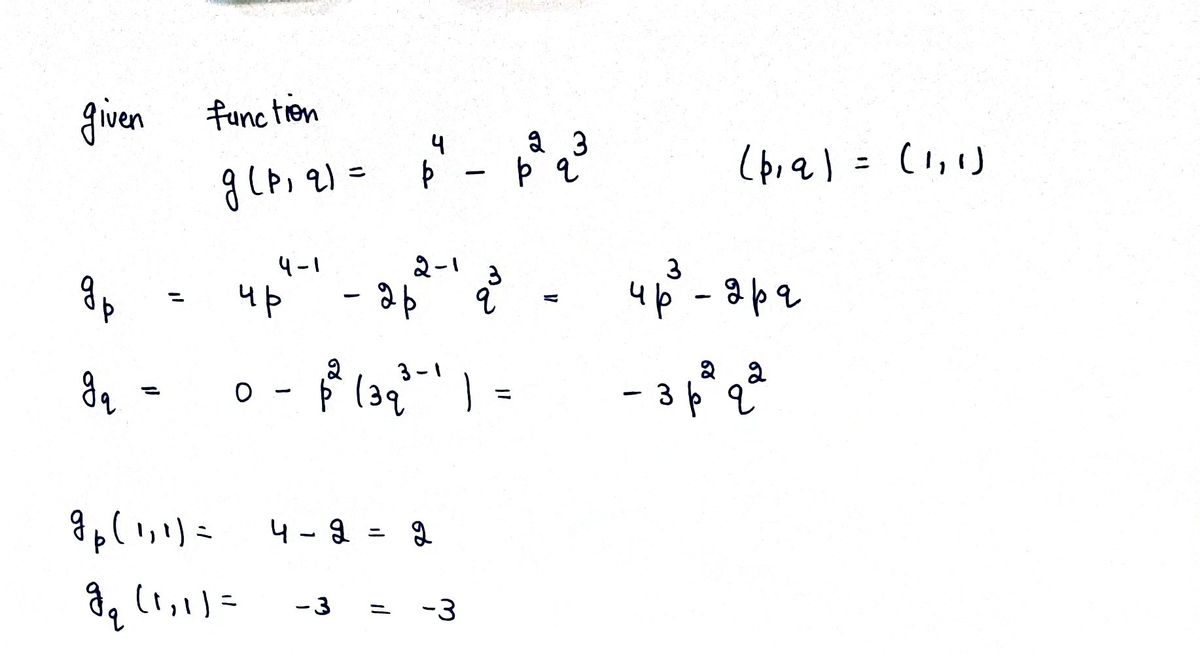 given function
g(p, q) = p⁴ - p² q³ (p, q) = (1, 1)
g_p = 4p⁴⁻¹ - 2p²⁻¹ q³ = 4p³ - 2pq
g_q = 0 - p² (3q³⁻¹) = -3p² q²
g_p(1,1) = 4 - 2 = 2
g_q (1,1) = -3 = -3